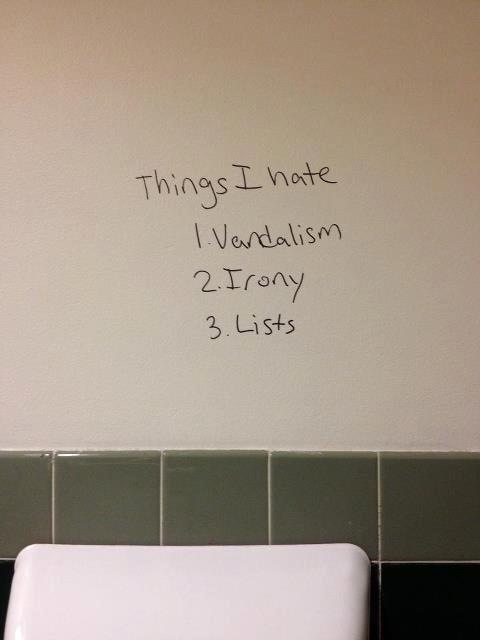 Things I hate
1. Vandalism
2. Irony
3. Lists